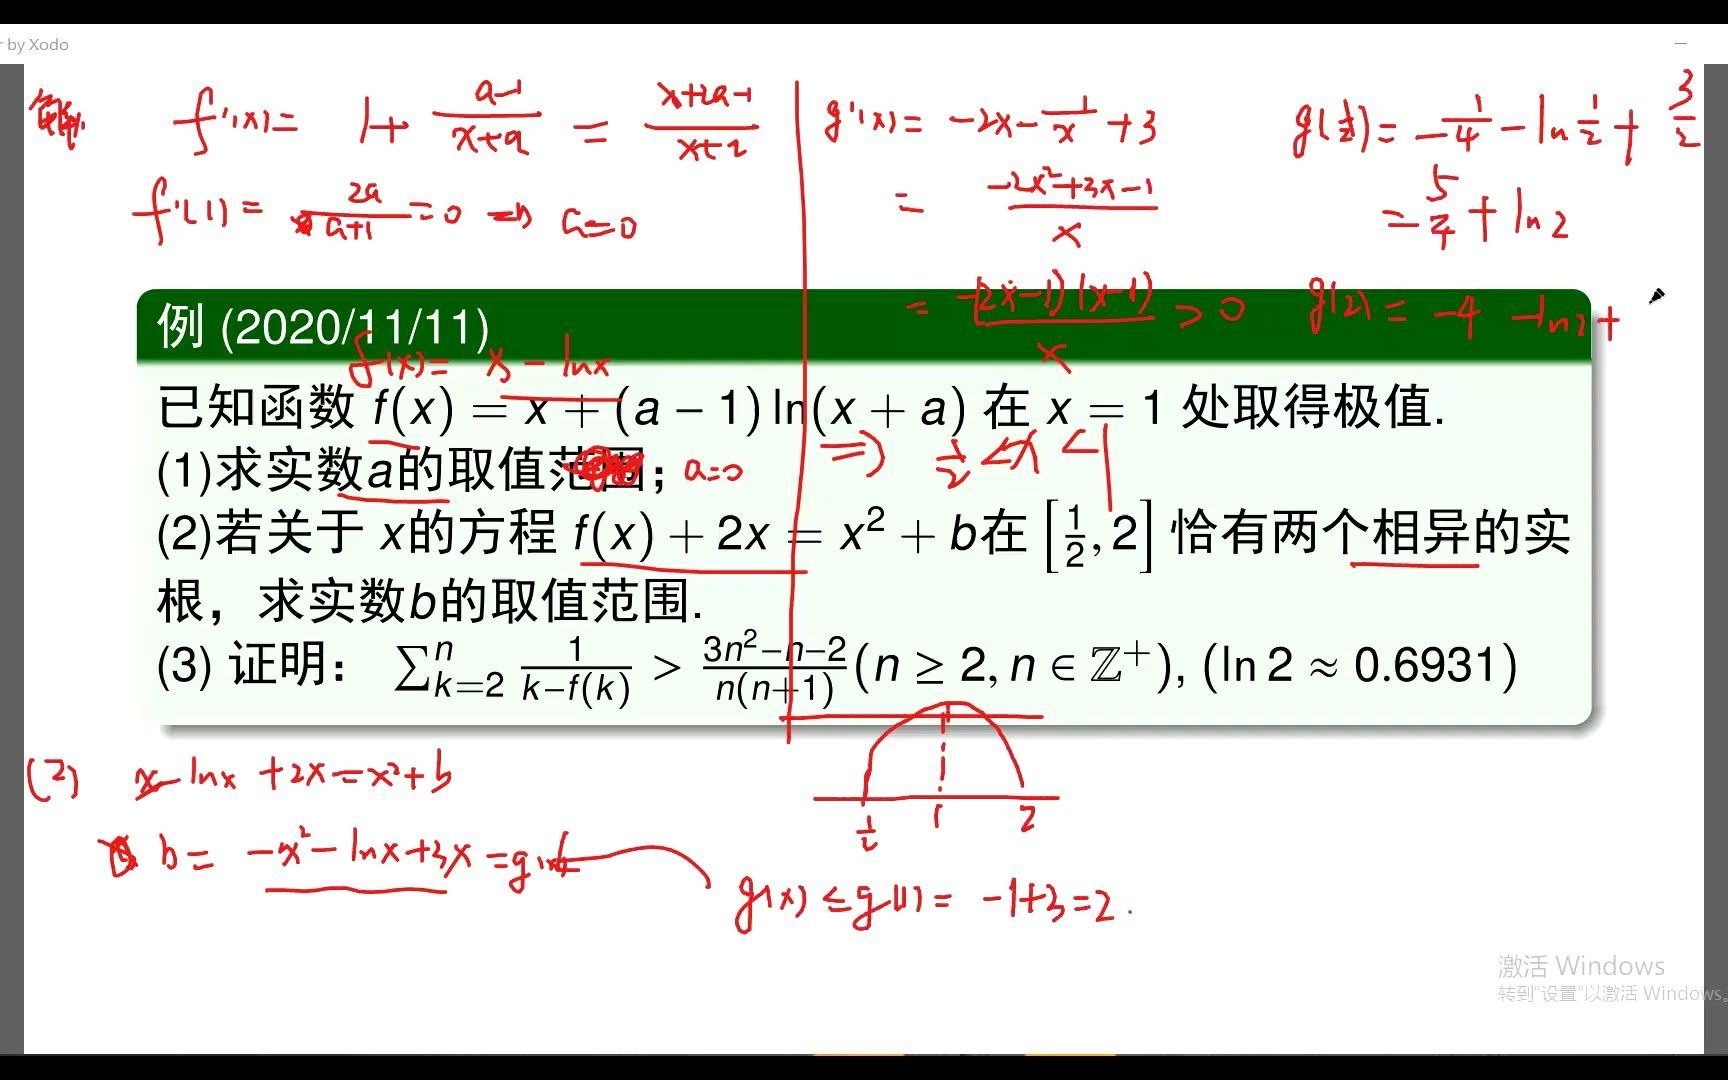 r by Xodo
解: f'(x) = 1 + (a-1)/(x+a) = (x+2a-1)/(x+a)
f'(1) = 2a/(a+1) = 0 ⇒ a=0
g'(x) = -2x - 1/x + 3
= (-2x²+3x-1)/x
= -(2x-1)(x-1)/x > 0
⇒ 1/2 < x < 1
g(1/2) = -1/4 - ln 1/2 + 3/2
= 5/4 + ln2
g(2) = -4 - ln2 +
例 (2020/11/11)
f(x) = x - lnx
已知函数 f(x) = x + (a − 1) ln(x + a) 在 x = 1 处取得极值.
(1)求实数a的取值范围; a=0
(2)若关于 x的方程 f(x) + 2x = x² + b在 [1/2, 2] 恰有两个相异的实
根，求实数b的取值范围.
(3) 证明： ∑ⁿₖ₌₂ 1/(k−f(k)) > (3n²−n−2)/(n(n+1)) (n ≥ 2, n ∈ ℤ⁺), (ln 2 ≈ 0.6931)
(2) x - lnx + 2x = x² + b
b = -x² - lnx + 3x = g(x)
1/2 1 2
g(x) ≤ g(1) = -1+3 = 2.
激活 Windows
转到"设置"以激活 Windows。